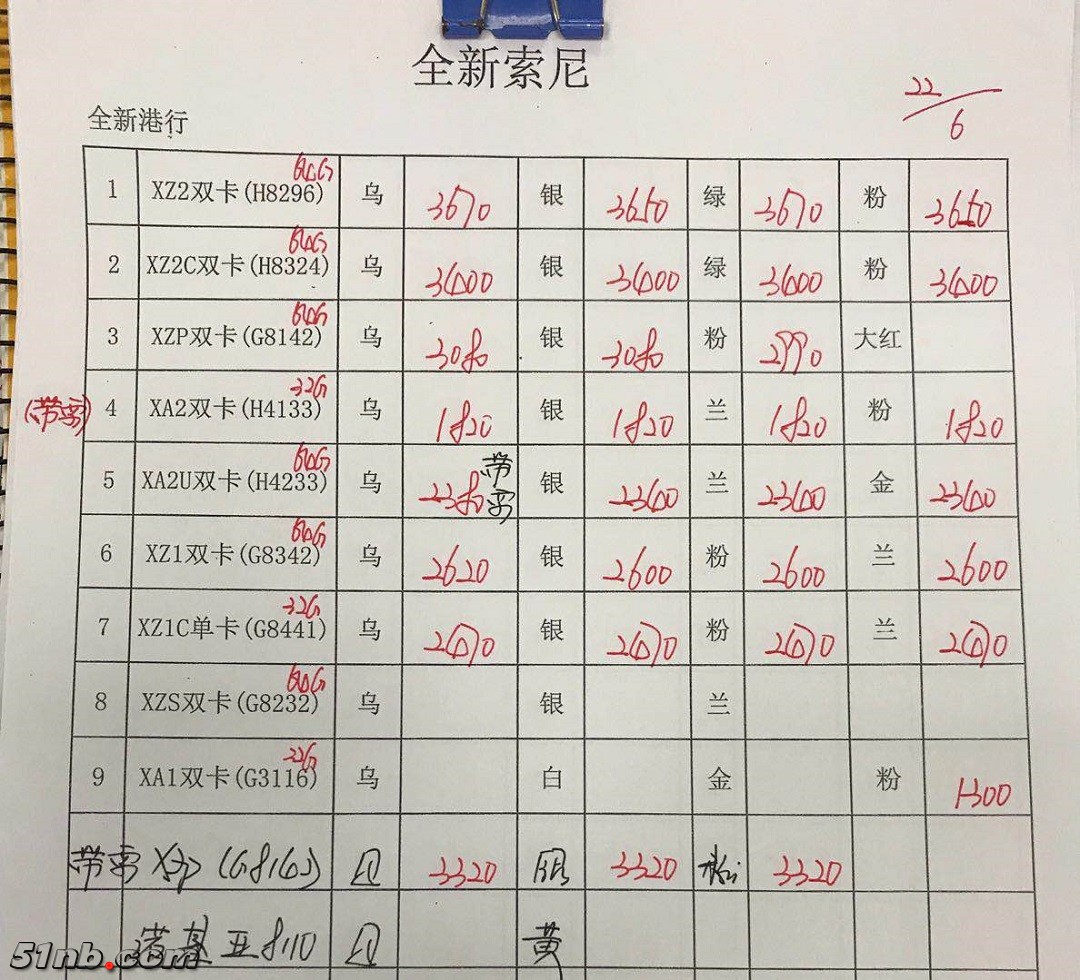 全新索尼
22/6
全新港行
1 XZ2双卡(H8296) 64G 乌 3670 银 3650 绿 3670 粉 3650
2 XZ2C双卡(H8324) 64G 乌 3400 银 3400 绿 3400 粉 3400
3 XZP双卡(G8142) 64G 乌 3080 银 3080 粉 2990 大红
(带票) 4 XA2双卡(H4133) 32G 乌 1820 银 1820 兰 1820 粉 1820
5 XA2U双卡(H4233) 64G 乌 2380 带票 银 2340 兰 2340 金 2340
6 XZ1双卡(G8342) 64G 乌 2620 银 2600 粉 2600 兰 2600
7 XZ1C单卡(G8441) 32G 乌 2470 银 2470 粉 2470 兰 2470
8 XZS双卡(G8232) 64G 乌 银 兰
9 XA1双卡(G3116) 32G 乌 白 金 粉 1300
带票 XZP 3320 3320 粉 3320
诺基亚8110 黄
51nb.com